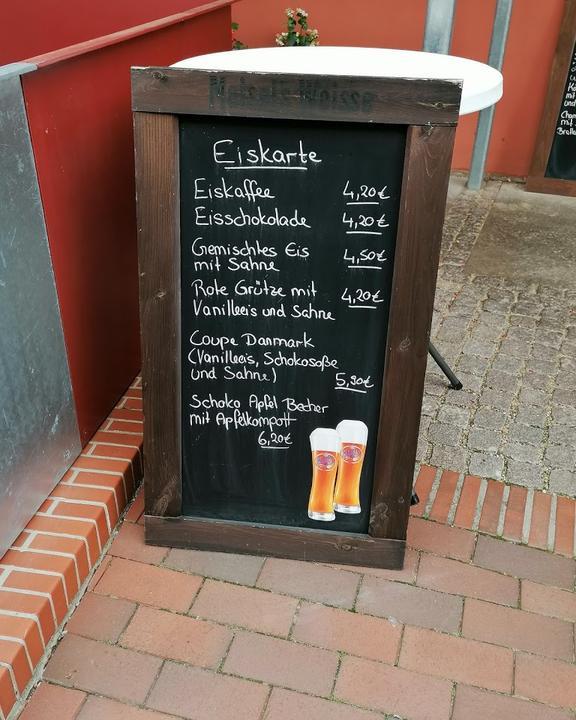 Maisel's Weisse
Eiskarte
Eiskaffee 4,20€
Eisschokolade 4,20€
Gemischtes Eis 4,50€
mit Sahne
Rote Grütze mit 4,20€
Vanilleeis und Sahne
Coupe Danmark
(Vanilleeis, Schokosoße
und Sahne) 5,90€
Schoko Apfel Becher
mit Apfelkompott
6,20€